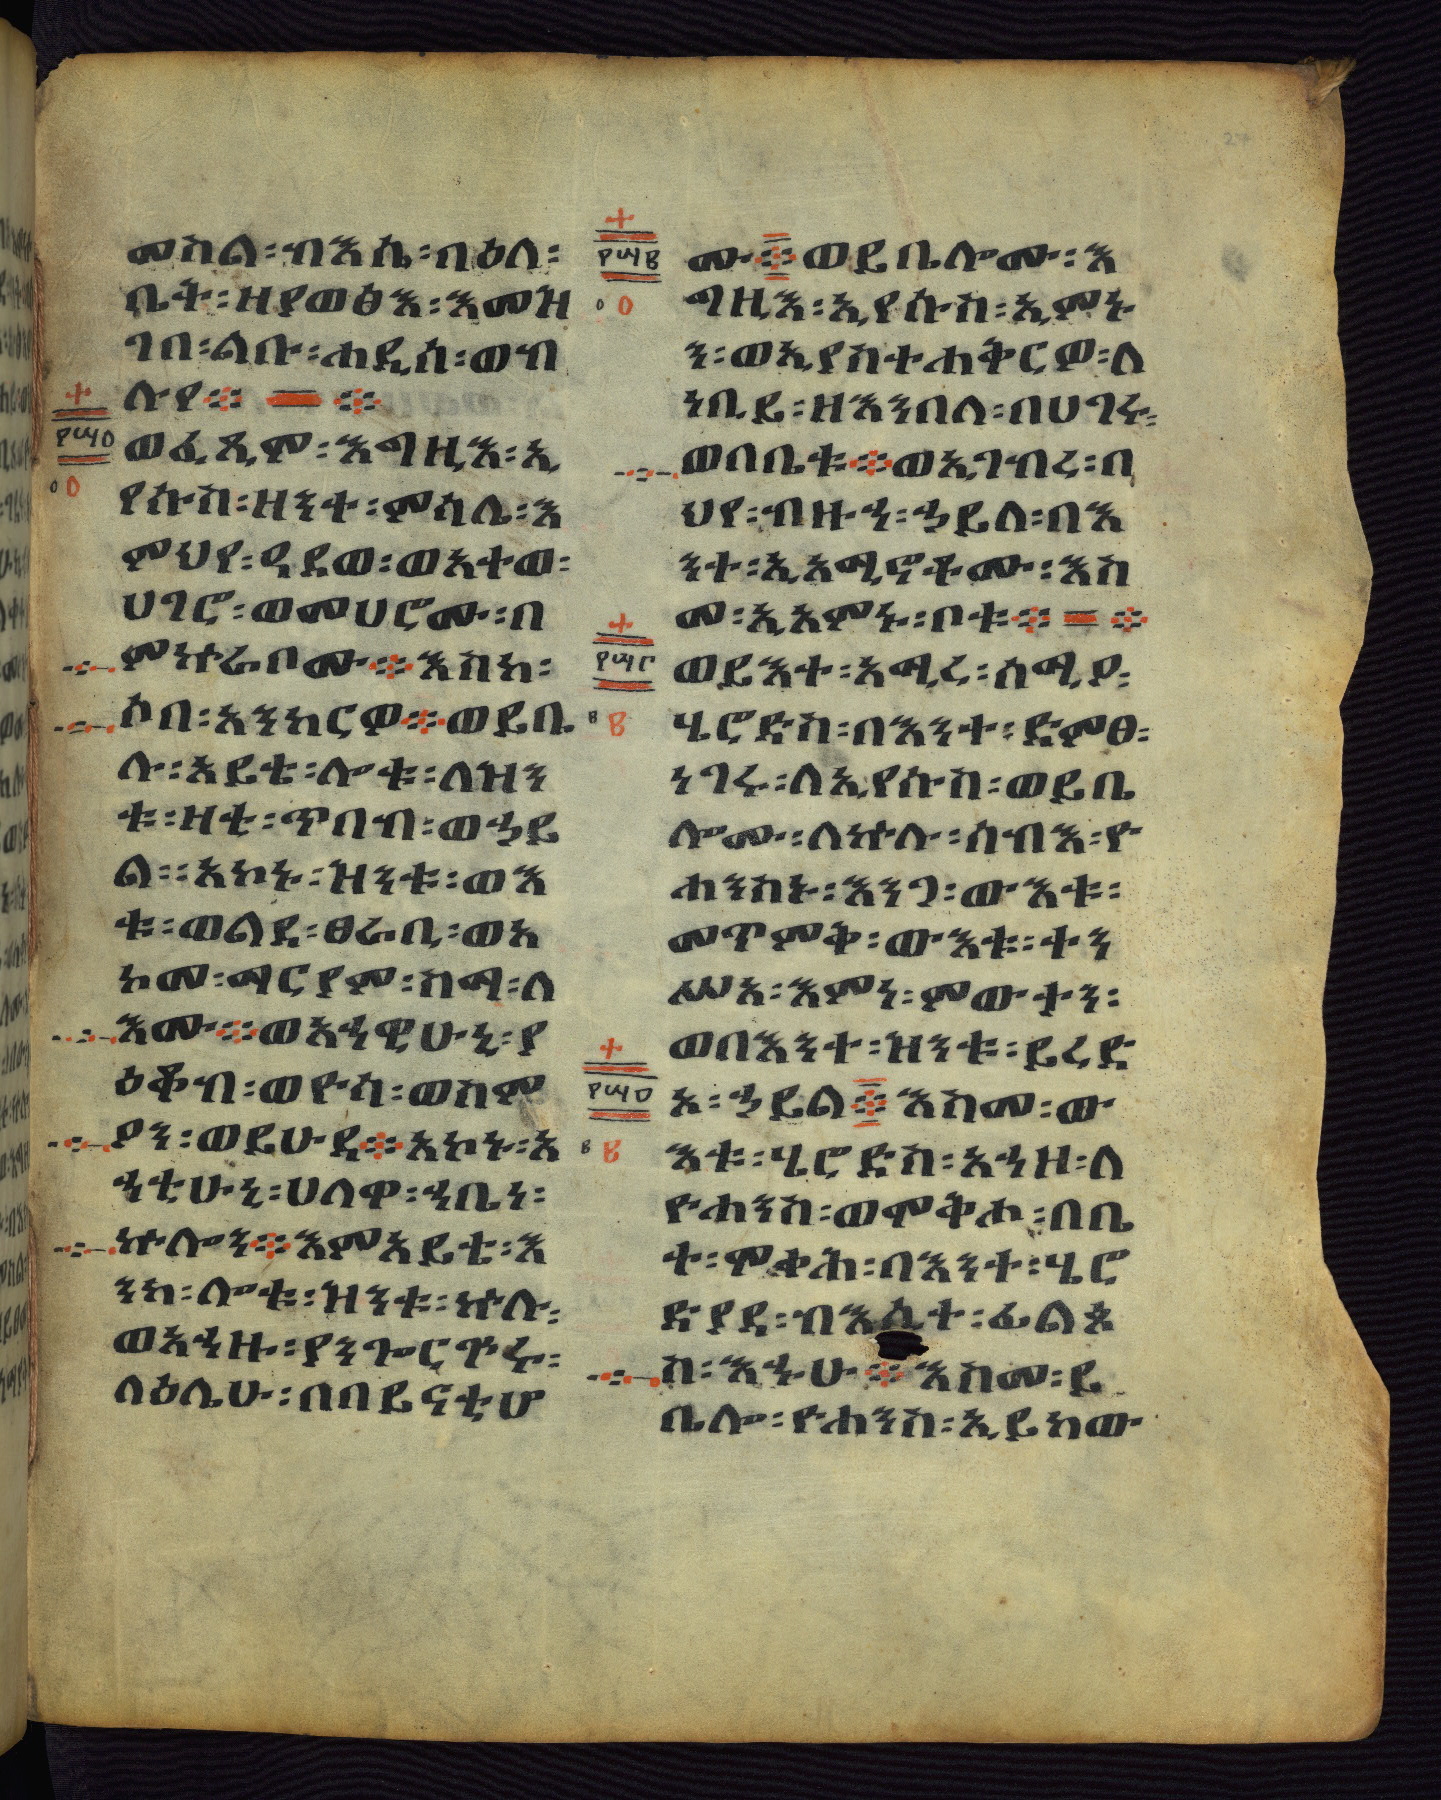 መስል፡ብእሴ፡በዕለ፡
ቤት፡ዘያወፅእ፡እመዝ
ገበ፡ልቡ፡ሐዲሰ፡ወብ
ሉየ፨ ፨
ወፈጺሞ፡እግዚእ፡ኢ
የሱስ፡ዘንተ፡ምሳሌ፡እ
ምህየ፡ዓደወ፡ወአተወ፡
ሀገሮ፡ወመሀሮሙ፡በ
ምኵራቦሙ፨እስከ፡
ሶበ፡አንከርዎ፨ወይቤ
ሉ፡እይቴ፡ሎቱ፡ለዝን
ቱ፡ዛቲ፡ጥበብ፡ወኃይ
ል፡፡አኮኑ፡ዝንቱ፡ውእ
ቱ፡ወልደ፡ፀራቢ፡ወአ
ኮመ፡ማርያም፡ስማ፡ለ
እሙ፨ወአኀዊሁኒ፡ያ
ዕቆብ፡ወዮሳ፡ወስም
ዖን፡ወይሁዳ፨አኮኑ፡አ
ኃቲሁኒ፡ሀለዋ፡ኀቤነ፡
ኵሎን፨እምአይቴ፡እ
ንከ፡ሎቱ፡ዝንቱ፡ኵሉ፡
ወአኀዙ፡ያንጐርጕሩ፡
ላዕሌሁ፡በበይናቲሆ
ሙ፨ወይቤሎሙ፡እ
ግዚእ፡ኢየሱስ፡ኢምኑ
ን፡ወኢያስተሐቅርዎ፡ለ
ነቢይ፡ዘእንበለ፡በሀገሩ፡
ወበቤቱ፨ወኢገብረ፡በ
ህየ፡ብዙኃ፡ኃይለ፡በእ
ንተ፡ኢአሚኖቶሙ፡እስ
መ፡ኢአምኑ፡ቦቱ፨ ፨
ወይእተ፡አሚረ፡ሰሚዖ፡
ሄሮድስ፡በእንተ፡ድምፀ፡
ነገሩ፡ለኢየሱስ፡ወይቤ
ሎሙ፡ለኵሉ፡ሰብእ፡ዮ
ሐንስኑ፡እንጋ፡ውእቱ፡
መጥምቅ፡ውእቱ፡ተን
ሥአ፡እምነ፡ምውታን፡
ወበእንተ፡ዝንቱ፡ይረድ
እ፡ኃይል፨እስመ፡ው
እቱ፡ሄሮድስ፡አኀዘ፡ለ
ዮሐንስ፡ወሞቅሖ፡በቤ
ተ፡ሞቅሕ፡በእንተ፡ሄሮ
ድያዳ፡ብእሲተ፡ፊልጶ
ስ፡እኁሁ፨እስመ፡ይ
ቤሎ፡ዮሐንስ፡ኢይከው
፻፵፬
፬
፻፵፪
፬
፻፵፫
፪
፻፵፬
፪